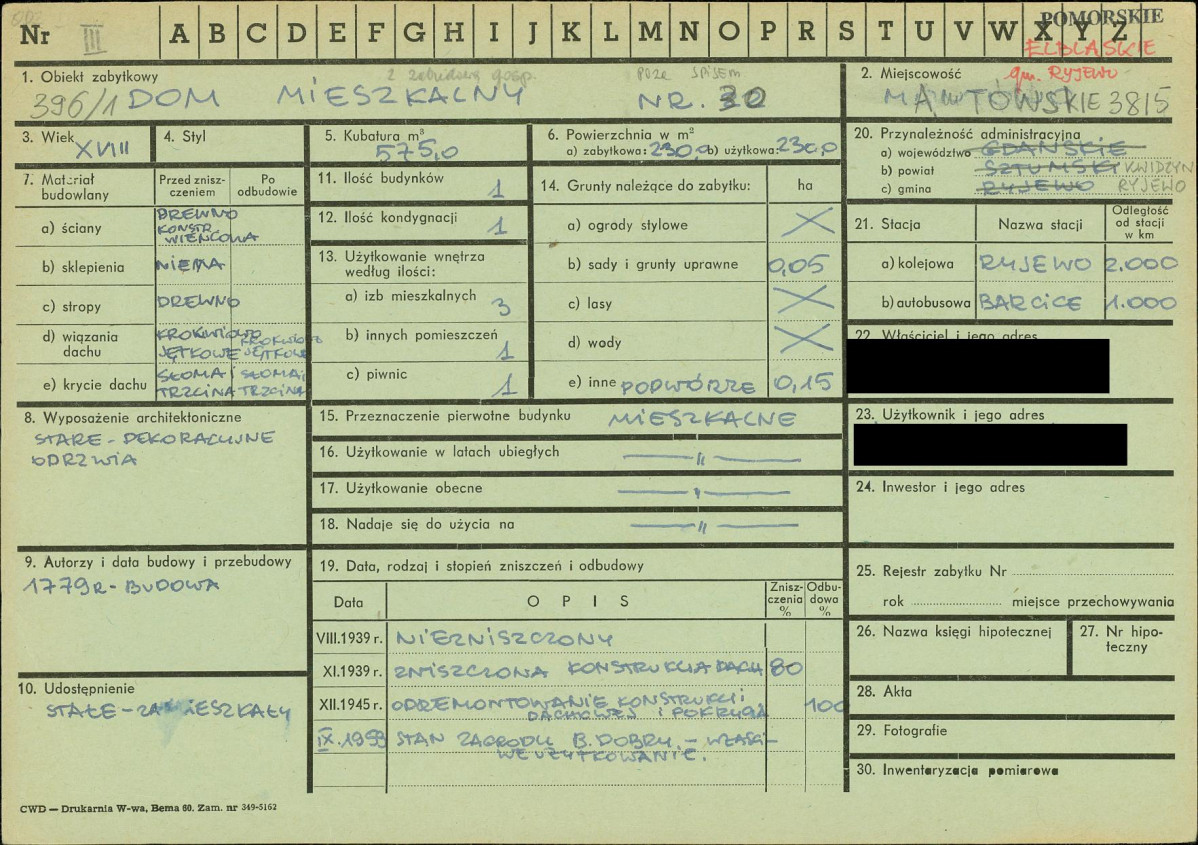 Nr III A B C D E F G H I J K L M N O P R S T U V W X Y Z
POMORSKIE
ELBLĄSKIE
gm. RYJEWO
1. Obiekt zabytkowy
z zabudową gosp. poza spisem
396/1 DOM MIESZKALNY NR. 30
2. Miejscowość
MĄTOWSKIE 38/5
3. Wiek
XVIII
4. Styl
5. Kubatura m³
575,0
6. Powierzchnia w m²
a) zabytkowa: 230,0 b) użytkowa: 230,0
7. Materiał budowlany
Przed znisz-
czeniem
Po
odbudowie
a) ściany
DREWNO
KONSTR.
WIEŃCOWA
b) sklepienia NIEMA
c) stropy DREWNO
d) wiązania
dachu
KROKWIOWO
JĘTKOWE
KROKWIOWO
JĘTKOWE
e) krycie dachu
SŁOMA i
TRZCINA
SŁOMA i
TRZCINA
8. Wyposażenie architektoniczne
STARE - DEKORACYJNE
ODRZWIA
9. Autorzy i data budowy i przebudowy
1779 R - BUDOWA
10. Udostępnienie
STAŁE - ZAMIESZKAŁY
11. Ilość budynków 1
12. Ilość kondygnacji 1
13. Użytkowanie wnętrza
według ilości:
a) izb mieszkalnych 3
b) innych pomieszczeń 1
c) piwnic 1
14. Grunty należące do zabytku: ha
a) ogrody stylowe
b) sady i grunty uprawne 0,05
c) lasy
d) wody
e) inne PODWÓRZE 0,15
15. Przeznaczenie pierwotne budynku MIESZKALNE
16. Użytkowanie w latach ubiegłych — " —
17. Użytkowanie obecne — " —
18. Nadaje się do użycia na — " —
19. Data, rodzaj i stopień zniszczeń i odbudowy
Data
O P I S
Znisz-
czenia
%
Odbu-
dowa
%
VIII.1939 r. NIEZNISZCZONY
XI.1939 r. ZNISZCZONA KONSTRUKCJA DACH 80
XII.1945 r. ODREMONTOWANIE KONSTRUKCJI
DACHOWEJ I POKRYCIA 100
IX.1959 STAN ZAGRODY B. DOBRY. - WŁAŚCI-
WE UŻYTKOWANIE.
20. Przynależność administracyjna
a) województwo GDAŃSKIE
b) powiat SZTUMSKI KWIDZYN
c) gmina RYJEWO RYJEWO
21. Stacja
Nazwa stacji
Odległość
od stacji
w km
a) kolejowa RYJEWO 2.000
b) autobusowa BARCICE 1.000
22. Właściciel i jego adres
23. Użytkownik i jego adres
24. Inwestor i jego adres
25. Rejestr zabytku Nr
rok miejsce przechowywania
26. Nazwa księgi hipotecznej
27. Nr hipo-
teczny
28. Akta
29. Fotografie
30. Inwentaryzacja pomiarowa
CWD — Drukarnia W-wa, Bema 60. Zam. nr 349-5162